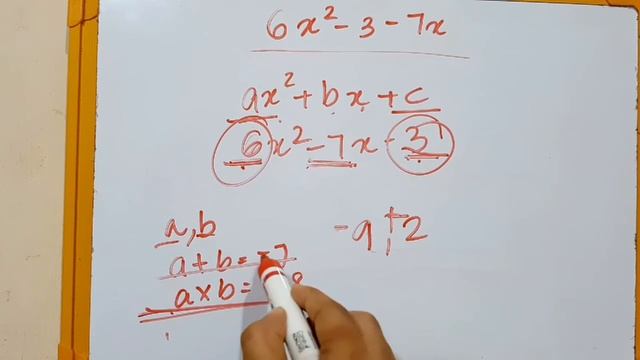 6x² - 3 - 7x
ax² + bx + c
6x² - 7x - 3
a, b
-9, +2
a + b = -7
a × b = 8